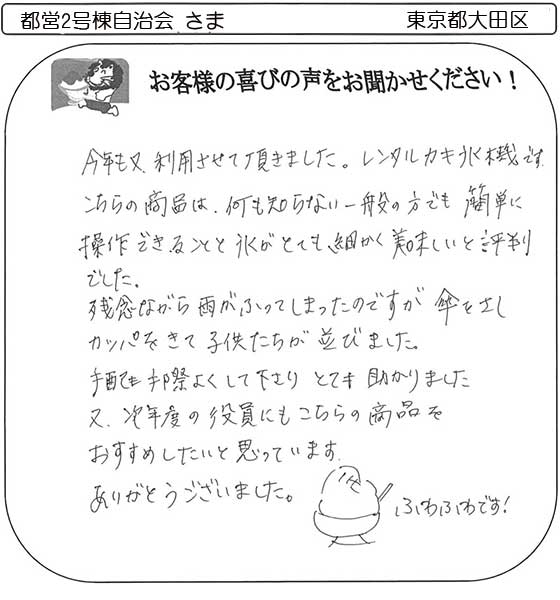 都営2号棟自治会 さま
東京都大田区
お客様の喜びの声をお聞かせください！
今年も又、利用させて頂きました。レンタルカキ氷機です
こちらの商品は、何も知らない一般の方でも 簡単に
操作できることと氷がとても、細かく美味しいと評判
でした。
残念ながら雨がふってしまったのですが 傘をさし
カッパをきて子供たちが並びました。
手配も手際よくして下さり とても助かりました
又、次年度の役員にもこちらの商品を
おすすめしたいと思っています。
ありがとうございました。
ふわふわです!